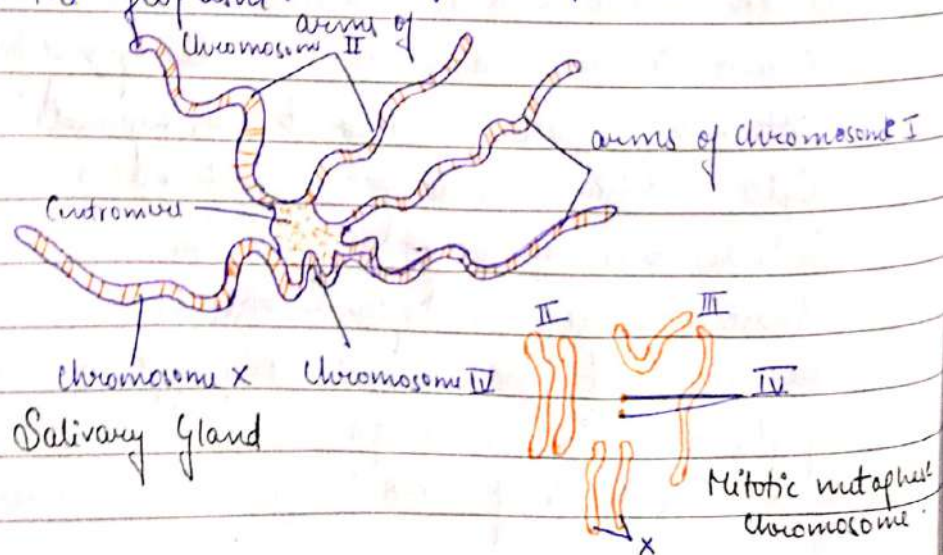 arms of
Chromosome II
arms of Chromosome I
Centromere
Chromosome X
Chromosome IV
II
III
IV
Salivary Gland
Mitotic metaphase
Chromosome
X